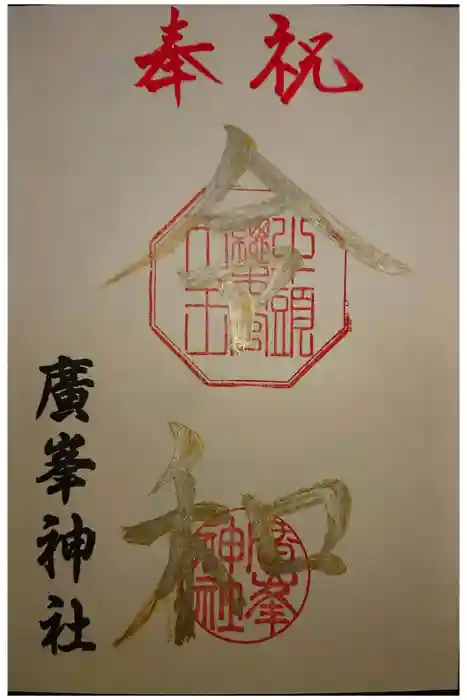 奉祝
令和
廣峯神社
廣峯
神社